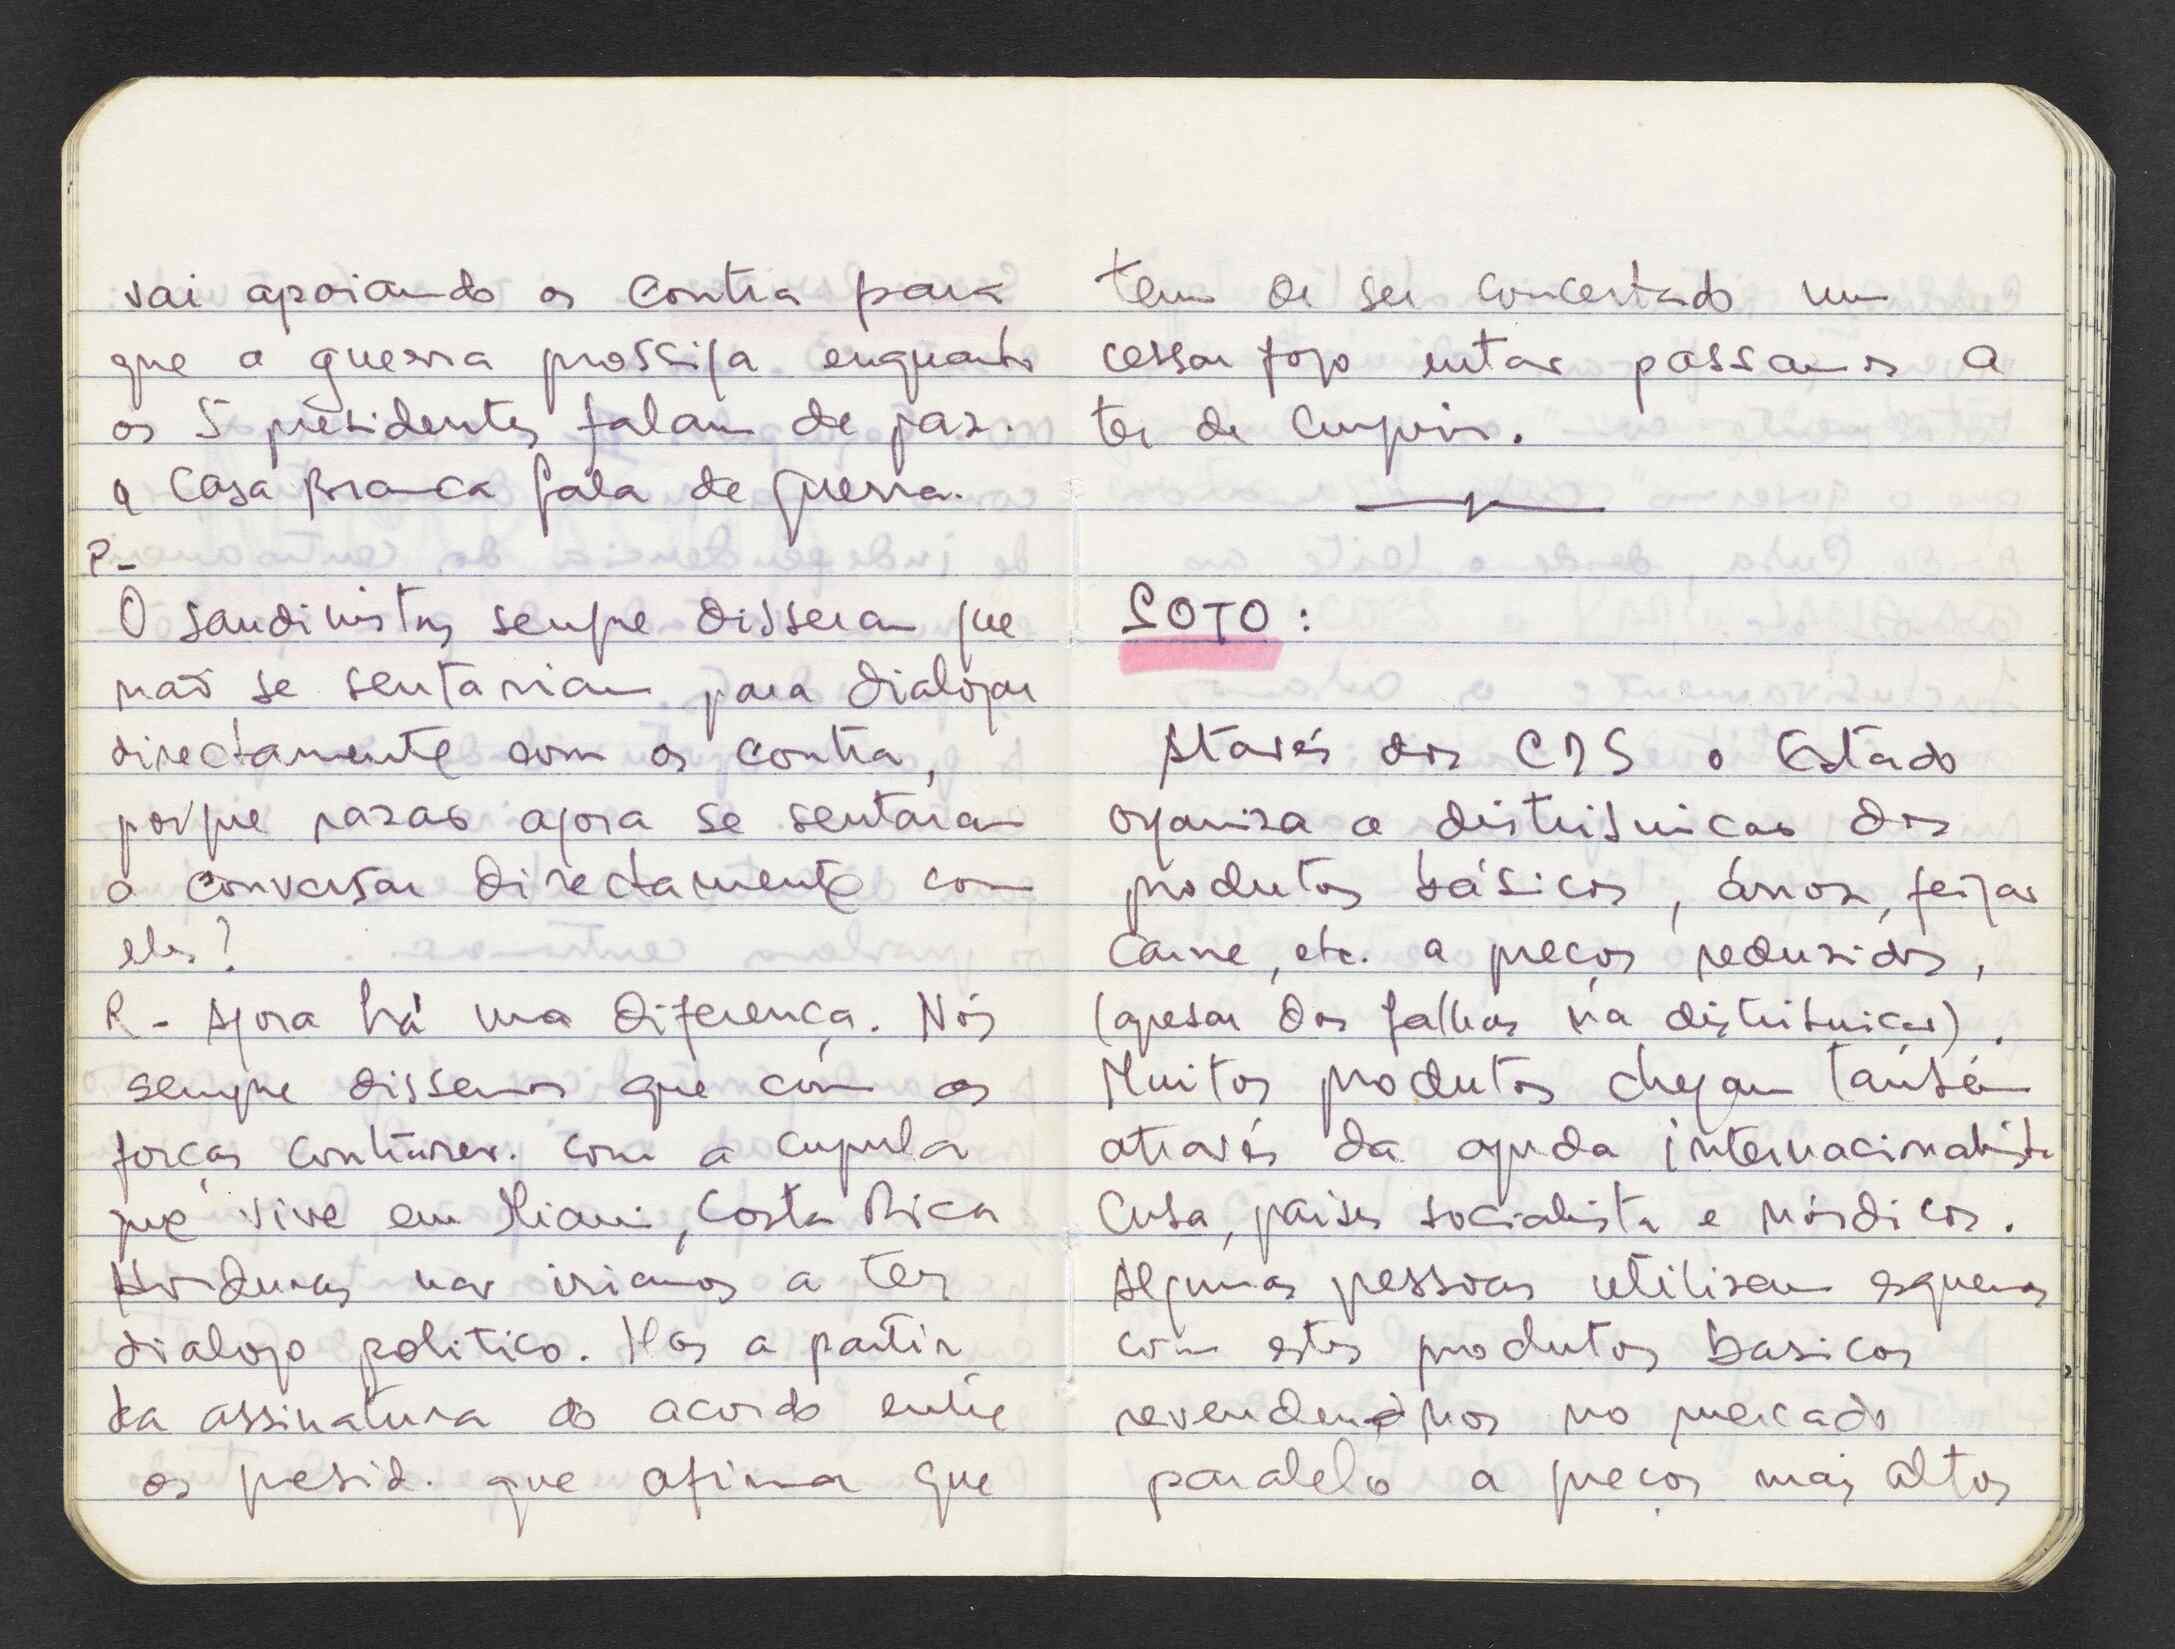 vai apoiando os contra para
que a guerra prossiga enquanto
os 5 presidentes falam de paz.
a Casa Branca fala de guerra.
P-
O sandinistas sempre disseram que
não se sentariam para dialogar
directamente com os contra,
porque razao agora se sentaram
a conversar directamente com
eles?
R - Agora há uma diferença. Nós
sempre dissemos que com as
forças contrarev. com a cupula
que vive em Miami, Costa Rica
Honduras nao iriamos a ter
dialogo politico. Mas a partir
da assinatura do acordo entre
os presid. que afirma que
tem de ser concertado um
cessar fogo entao passamos a
ter de cumprir.
SOTO :
Atravês dos CDS o Estado
organiza a distribuicao dos
produtos básicos, árroz, feijao
carne, etc. a preços reduzidos,
(apesar das falhas na distribuiçao).
Muitos produtos chegam també́m
através da ajuda internacionalista
Cuba, paises socialista e nórdicos.
Algumas pessoas utilizam esquemas
com estes produtos basicos
revendendo nos no mercado
paralelo a preços mais altos